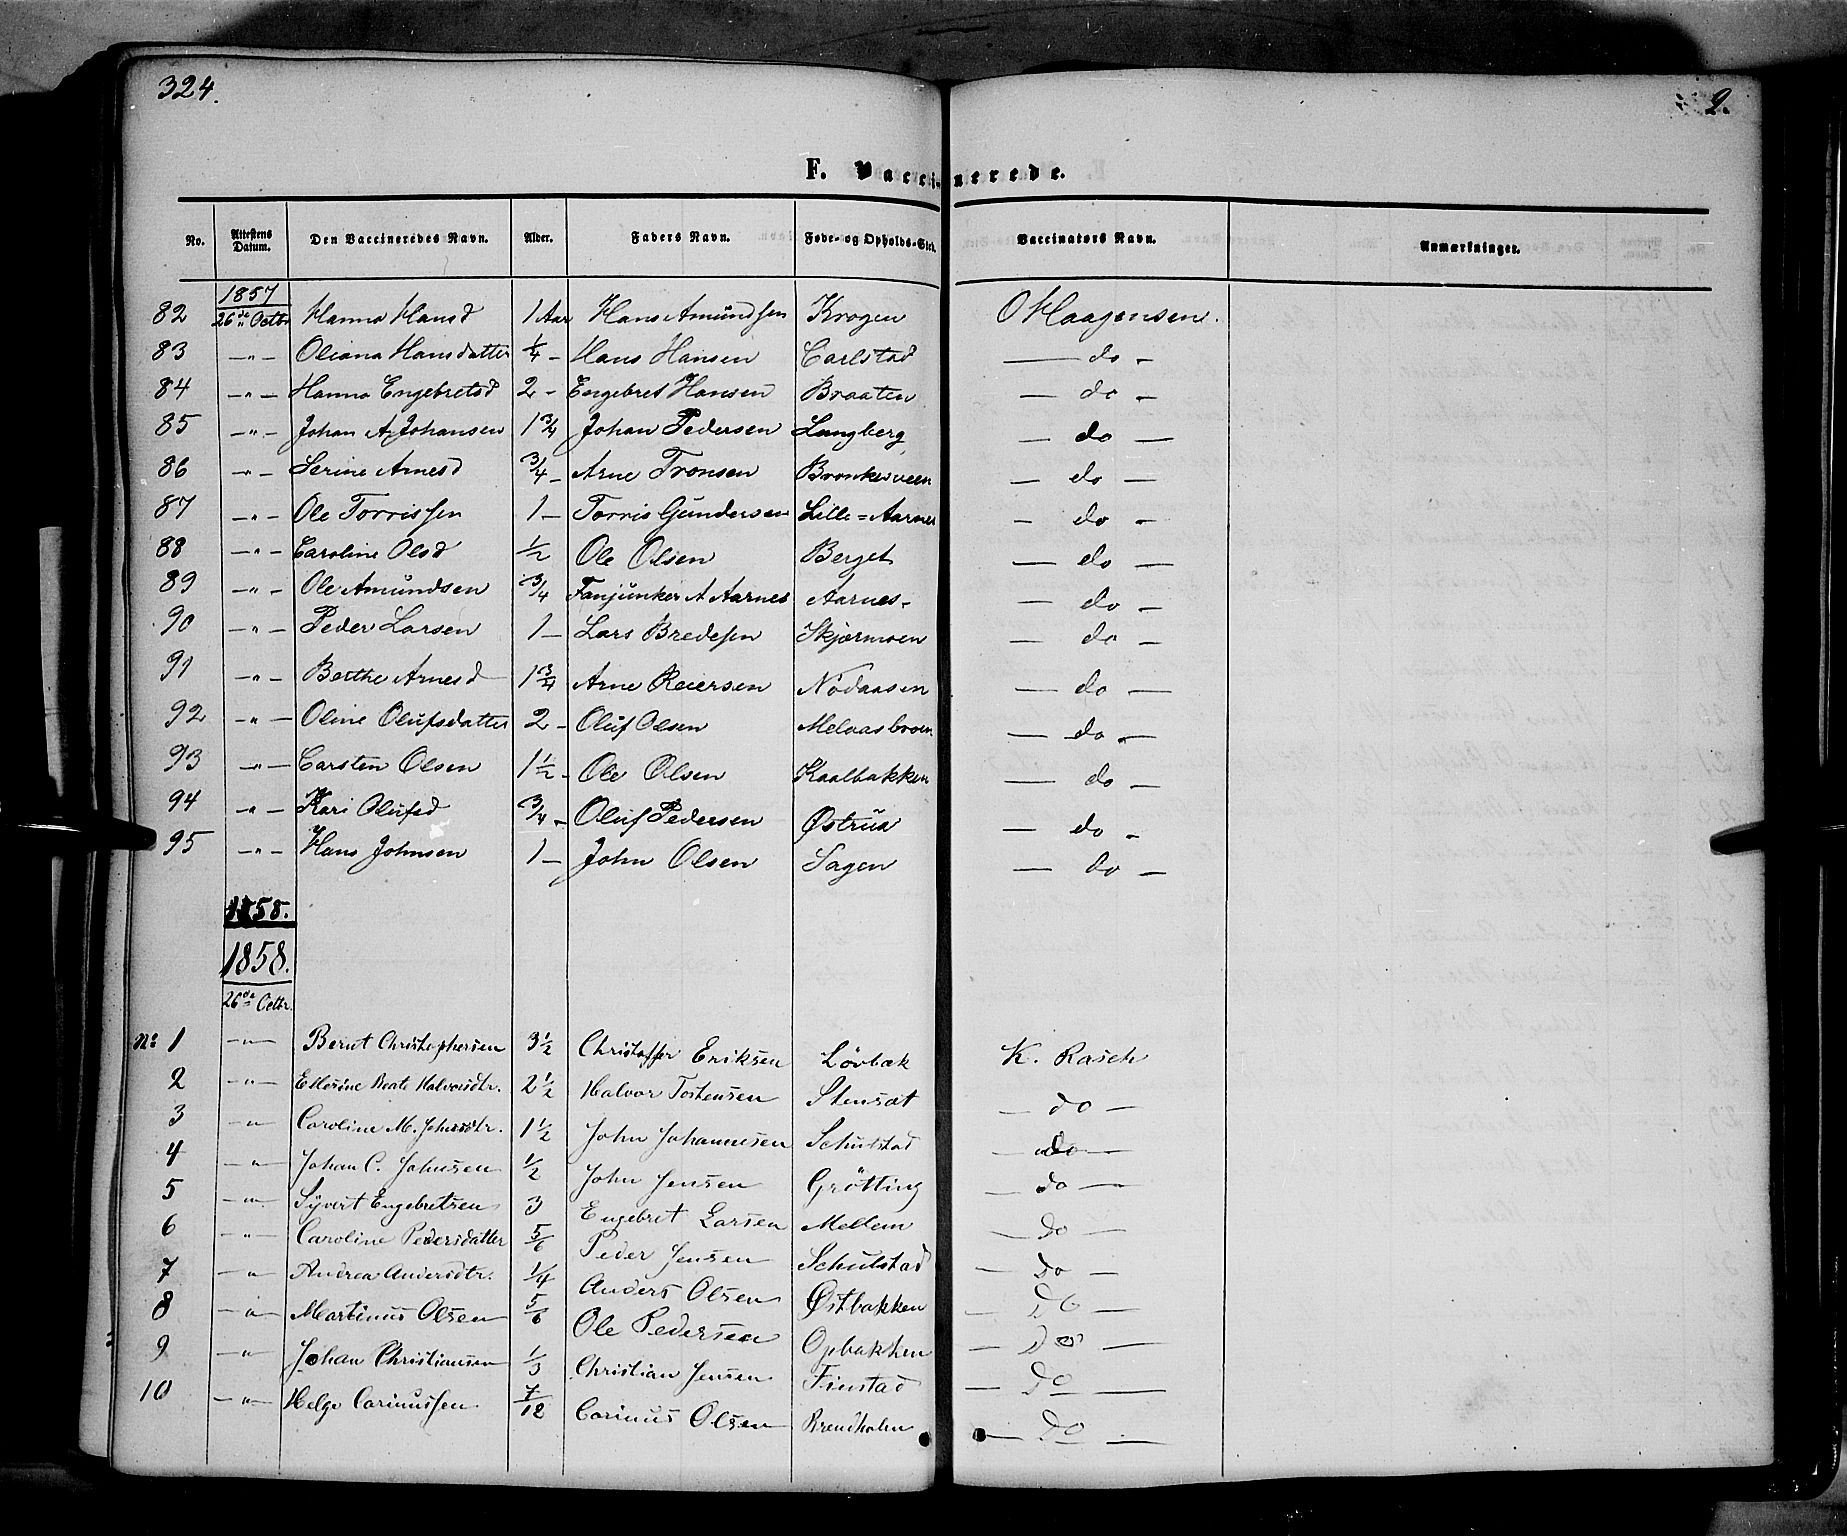 324.
2.
F. Vaccinerede.
No. Attestens Datum. Den Vaccineredes Navn. Alder. Faders Navn. Føde- og Opholds-Sted. Vaccinators Navn. Anmærkninger.
1857
82 26de Octbr Hanna Hansd 1 Aar Hans Amundsen Krogen O Haagensen.
83 —"— Oliana Hansdatter 1/4 — Hans Hansen Carlstad — do —
84 —"— Hanna Engebretsd 2 — Engebret Hansen Braaten — do —
85 —"— Johan A. Johansen 1 3/4 Johan Pedersen Langberg — do —
86 —"— Serine Arnesd 3/4 — Arne Tronsen Bronkesveen — do —
87 —"— Ole Torrissen 1 — Torris Gundersen Lille=Aarnes — do —
88 —"— Caroline Olsd 1/2 Ole Olsen Berget — do —
89 —"— Ole Amundsen 3/4 Fanjunker A Aarnes Aarnes — do —
90 —"— Peder Larsen 1 — Lars Bredesen Skjærmoen — do —
91 —"— Berthe Arnesd 1 3/4 Arne Reiersen Nodaasen — do —
92 —"— Oline Olufsdatter 2 — Oluf Olsen Melaasbroen — do —
93 —"— Carsten Olsen 1 1/2 — Ole Olsen Kaalbakken — do —
94 —"— Kari Olufsd 3/4 — Oluf Pedersen Østrud — do —
95 —"— Hans Johnsen 1 — John Olsen Sagen — do —
1858.
1858.
26de Octbr.
No 1 —"— Bernt Christophersen 3 1/2 Christoffer Eriksen Lövbak K. Rasch
2 —"— Ellesine Beate Halvorsdtr. 2 1/2 Halvor Tostensen Stensæt — do —
3 —"— Caroline M. Johnsdtr. 1 1/2 John Johannesen Schulstad — do —
4 —"— Johan C. Johnsen 1/2 John Jensen Grötting — do —
5 —"— Syvert Engebretsen 3 Engebret Larsen Mellem — do —
6 —"— Caroline Pedersdatter 5/6 Peder Jensen Schulstad — do —
7 —"— Andrea Andersdtr. 1/4 Anders Olsen Østbakken — Do —
8 —"— Martinus Olsen 5/6 Ole Pedersen Opbakken — Do —
9 —"— Johan Christiansen 1/3 Christian Jensen Finstad — Do —
10 —"— Helge Carinussen 7/12 Carinus Olsen Brendholen — Do —